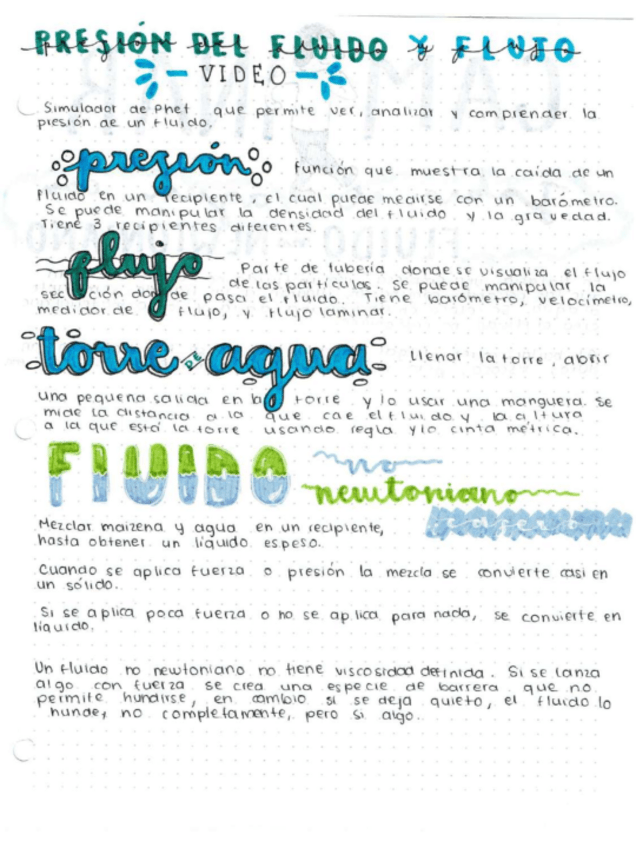 PRESIÓN DEL FLUIDO Y FLUJO
VIDEO
Simulador de Phet que permite ver, analizar y comprender la
presión de un fluido.
presión
función que muestra la caída de un
fluido en un recipiente, el cual puede medirse con un barómetro.
Se puede manipular la densidad del fluido y la gravedad.
Tiene 3 recipientes diferentes.
flujo
Parte de tubería donde se visualiza el flujo
de las partículas. Se puede manipular la
sección donde pasa el fluido. Tiene barómetro, velocímetro,
medidor de flujo, y flujo laminar.
torre de agua
Llenar la torre, abrir
una pequeña salida en la torre y/o usar una manguera. Se
mide la distancia a la que cae el fluido y la altura
a la que está la torre usando regla y/o cinta métrica.
FLUIDO no
newtoniano
Mezclar maizena y agua en un recipiente,
hasta obtener un líquido espeso.
Cuando se aplica fuerza o presión la mezcla se convierte casi en
un sólido.
Si se aplica poca fuerza o no se aplica para nada, se convierte en
líquido.
Un fluido no newtoniano no tiene viscosidad definida. Si se lanza
algo con fuerza se crea una especie de barrera que no
permite hundirse, en cambio si se deja quieto, el fluido lo
hunde, no completamente, pero si algo.